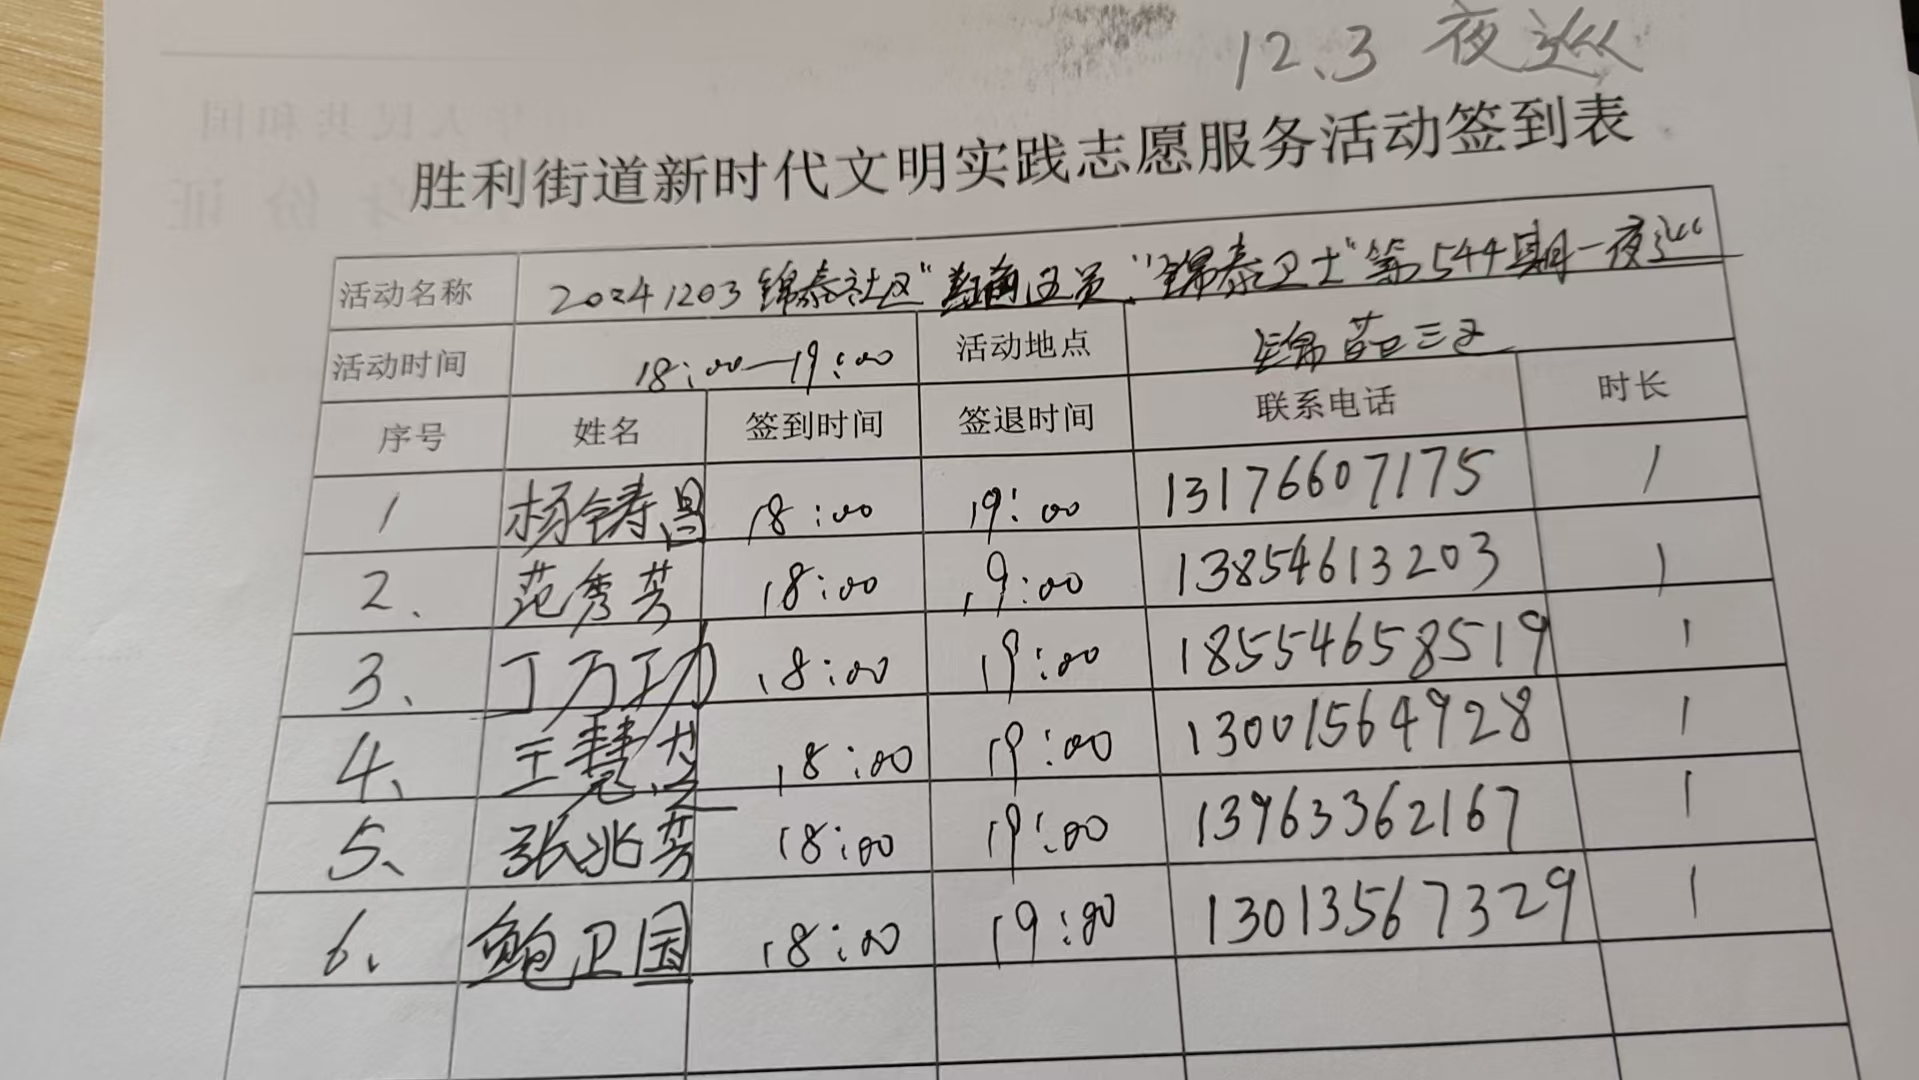 12.3 夜巡
胜利街道新时代文明实践志愿服务活动签到表
活动名称 20241203锦泰社区"员"锦泰卫士"第544期一夜巡
活动时间 18:00—19:00 活动地点 锦苑三区
序号 姓名 签到时间 签退时间 联系电话 时长
1 杨铸昌 18:00 19:00 13176607175 1
2、 范秀芳 18:00 19:00 13854613203 1
3、 丁万功 18:00 19:00 18554658519 1
4、 王慧芝 18:00 19:00 13001564928 1
5、 张兆芳 18:00 19:00 13963362167 1
6、 鲍卫国 18:00 19:00 13013567329 1